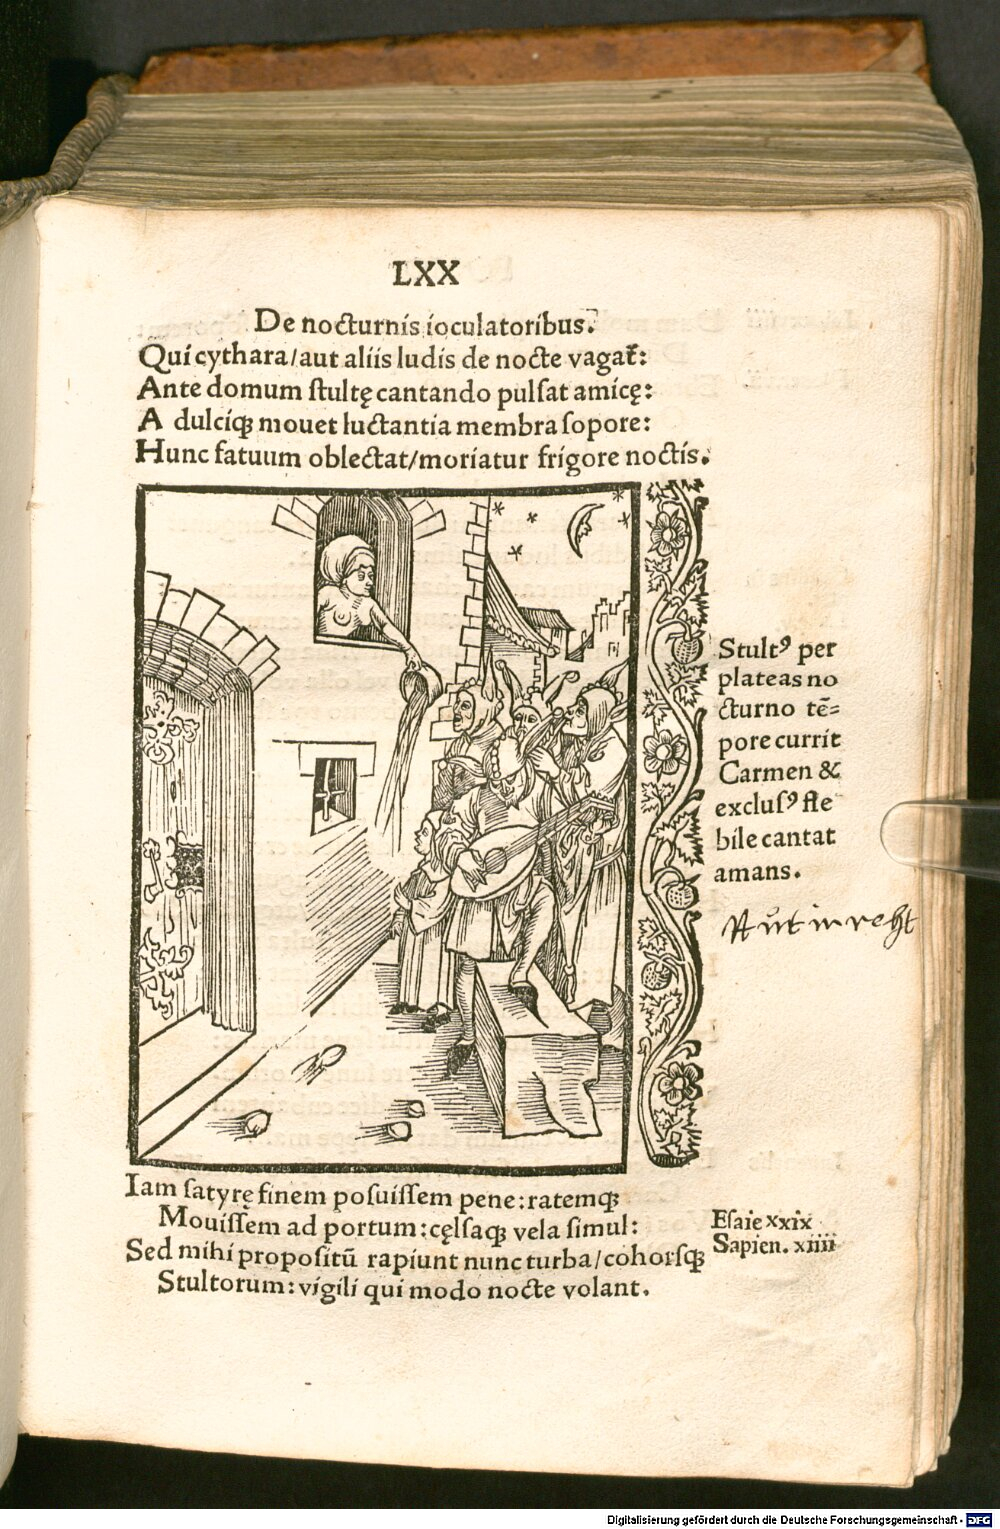 LXX
De nocturnis ioculatoribus.
Qui cythara/aut aliis ludis de nocte vagat᷑:
Ante domum stultę cantando pulsat amicę:
A dulciqꝫ mouet luctantia membra sopore:
Hunc fatuum oblectat/moriatur frigore noctis.
Stultꝰ per
plateas no
cturno tē=
pore currit
Carmen &
exclusꝰ fle
bile cantat
amans.
Iam satyrę finem posuissem pene:ratemqꝫ
Mouissem ad portum:cęlsaqꝫ vela simul:
Sed mihi propositū rapiunt nunc turba/cohorsqꝫ
Stultorum:vigili qui modo nocte volant.
Esaie xxix
Sapien. xiiii
Digitalisierung gefördert durch die Deutsche Forschungsgemeinschaft - DFG